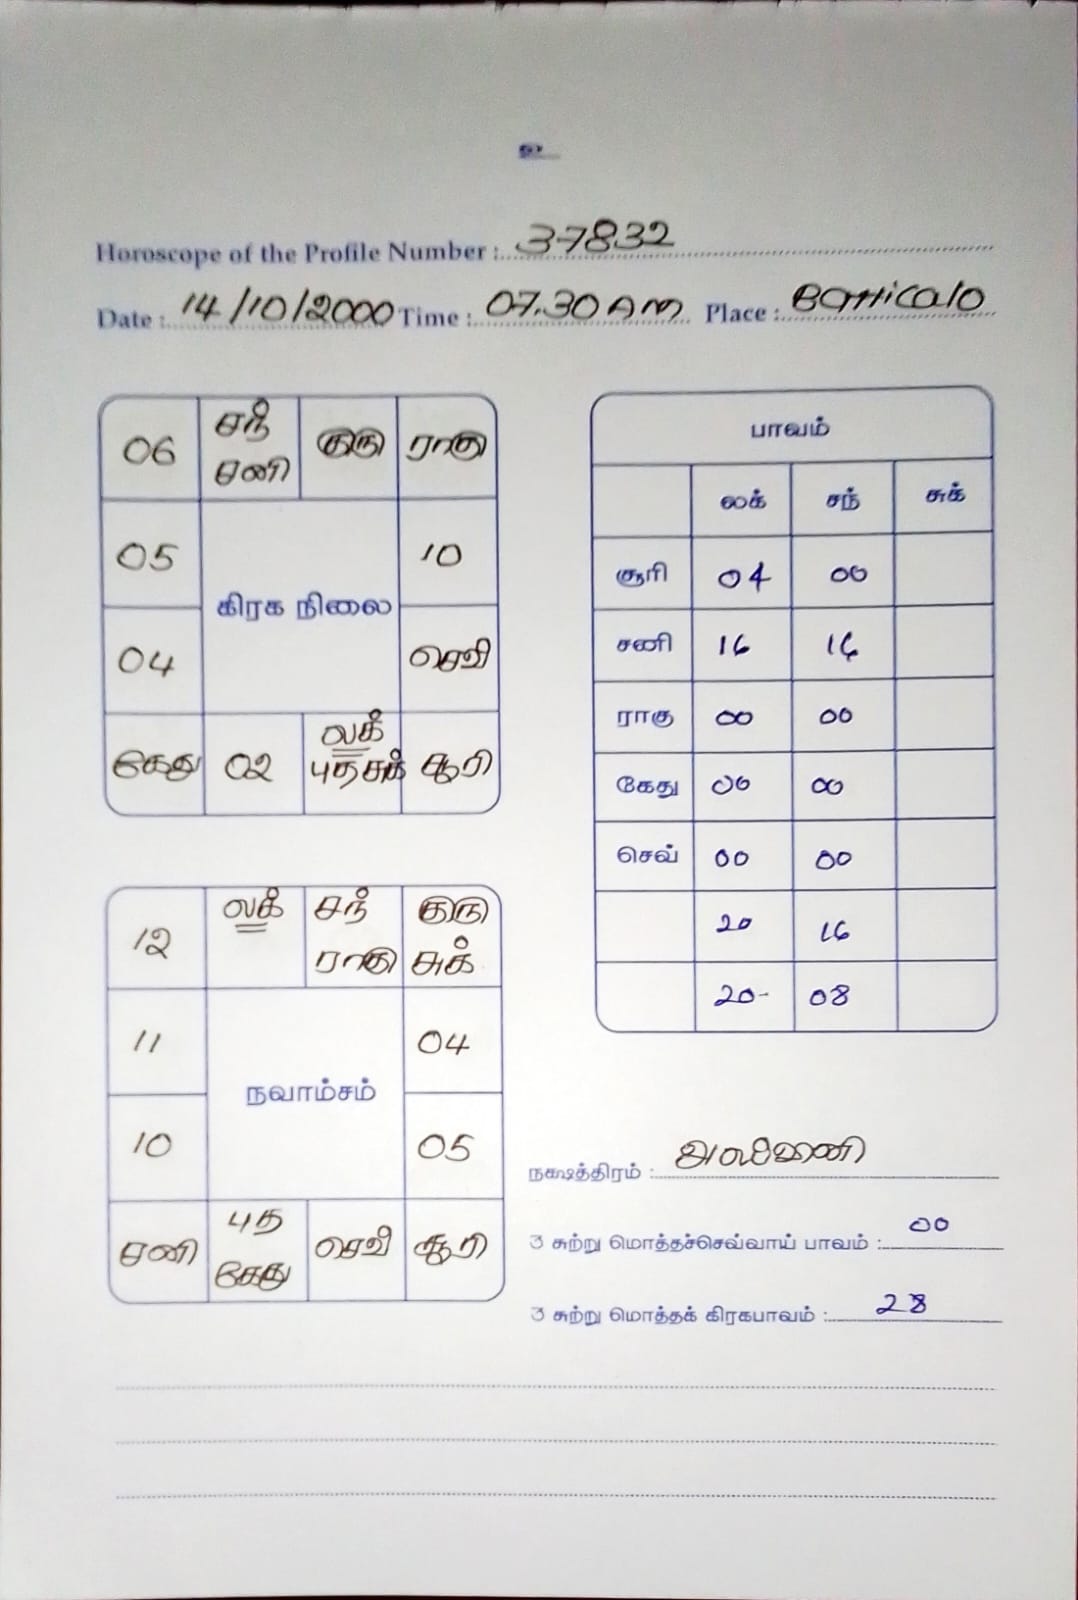 Horoscope of the Profile Number : 37832
Date : 14/10/2000 Time : 07.30 AM Place : Batticalo
06 சந் குரு ராகு
சனி
05 10
கிரக நிலை
04 செவ்
லக்
கேது 02 புத சுக் சூரி
பாவம்
லக் சந் சுக்
சூரி 04 00
சனி 16 16
ராகு 00 00
கேது 00 00
செவ் 00 00
20 16
20- 08
12 லக் சந் குரு
ராகு சுக்
11 04
நவாம்சம்
10 05
சனி புத செவ் சூரி
கேது
நக்ஷத்திரம் : அஸ்வினி
3 சுற்று மொத்தச்செவ்வாய் பாவம் : 00
3 சுற்று மொத்தக் கிரகபாவம் : 28